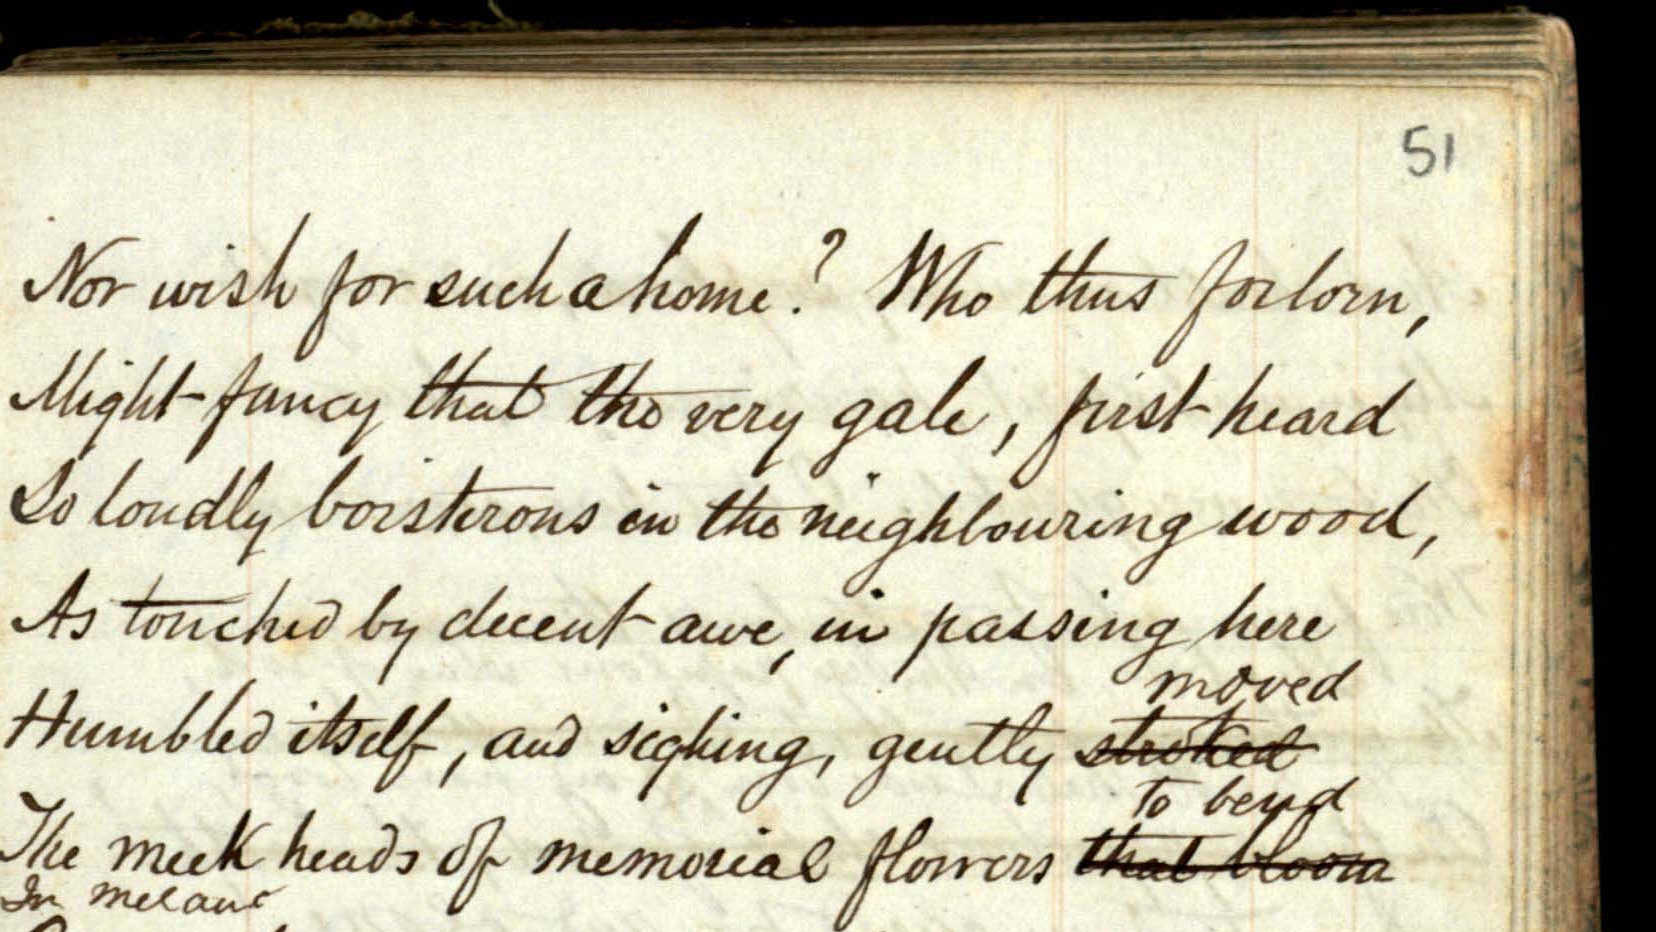 51
Nor wish for such a home? Who thus forlorn,
Might fancy that the very gale, first heard
So loudly boisterous in the neighbouring wood,
As touched by decent awe, in passing here
moved
Humbled itself, and sighing, gently stroked
to bend
The meek heads of memorial flowers that bloom
In